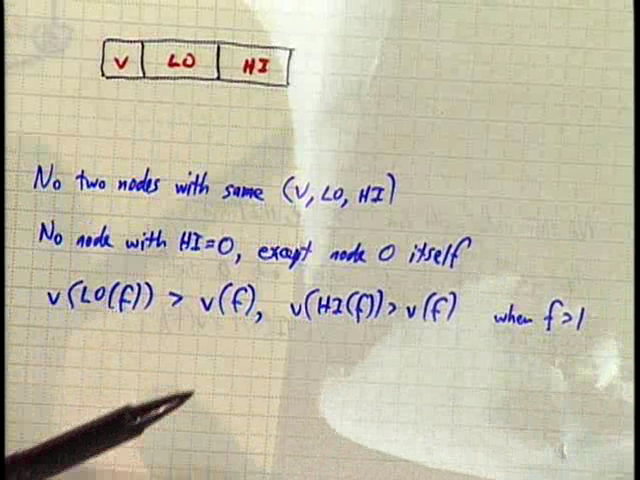 V LO HI
No two nodes with same (V, LO, HI)
No node with HI=0, except node 0 itself
v(LO(f)) > v(f), v(HI(f)) > v(f) when f>1